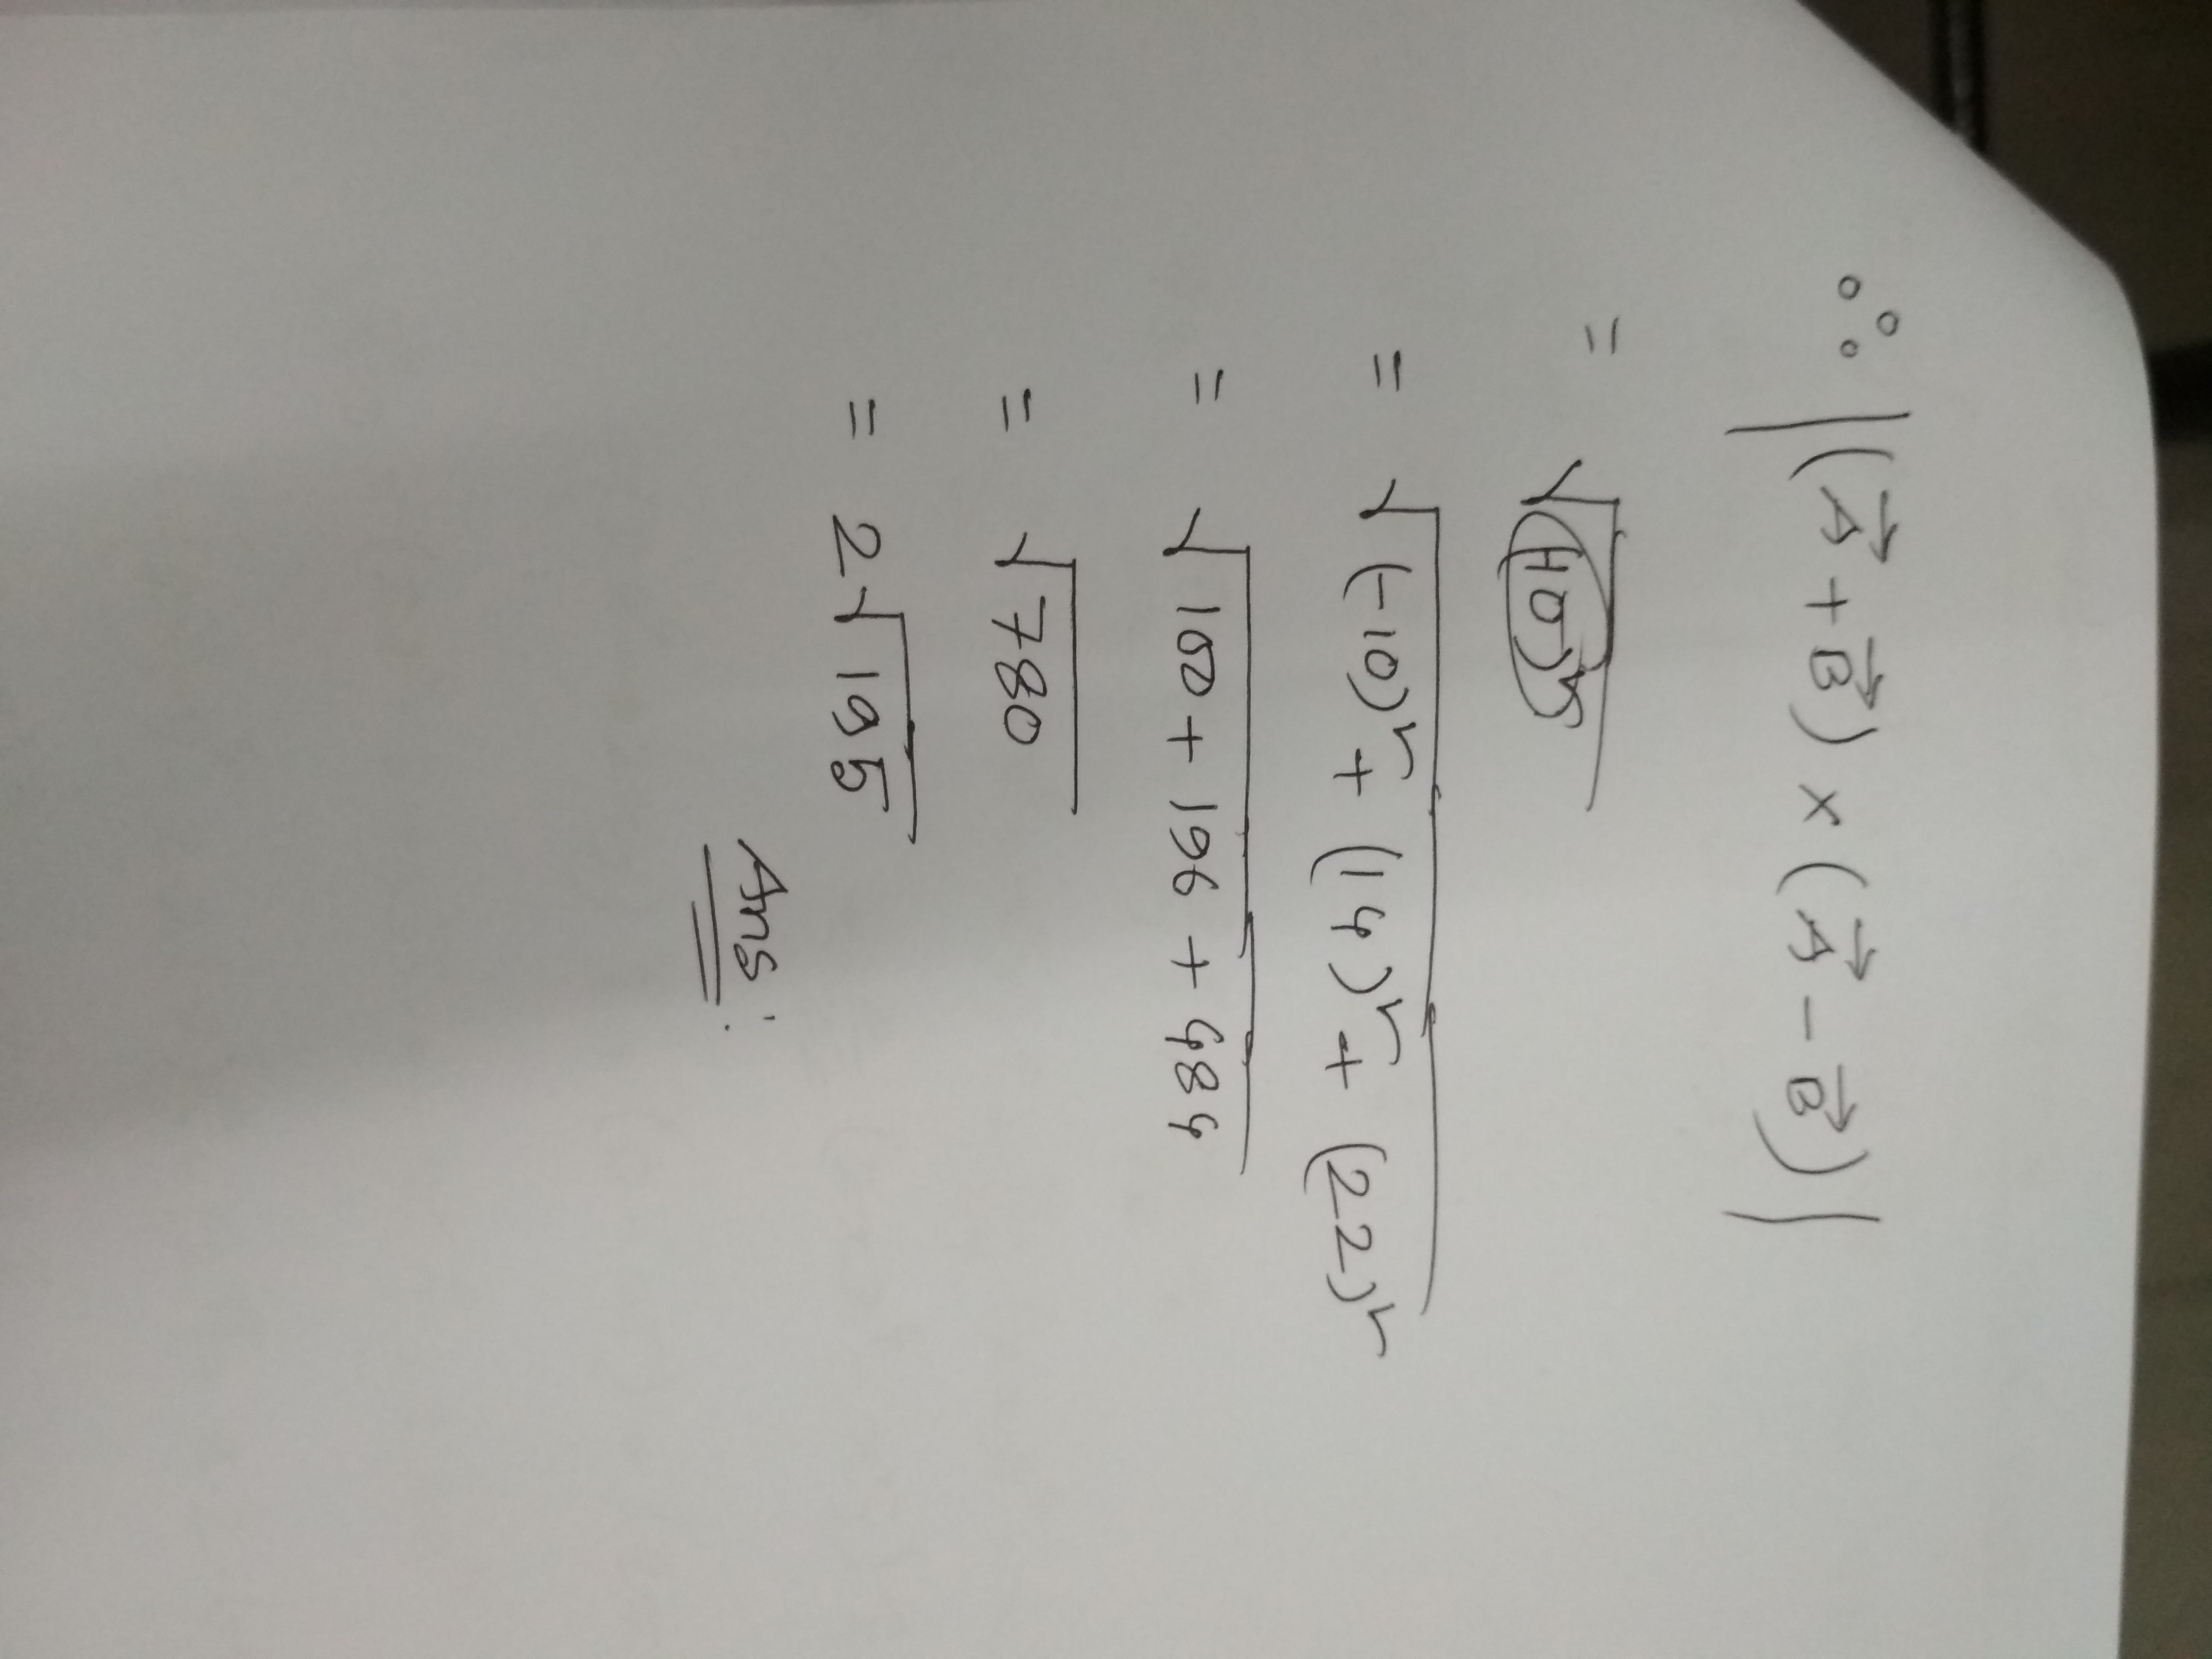 ∴ |(A⃗ + B⃗) × (A⃗ - B⃗)|
= √
= √(-10)² + (14)² + (22)²
= √100 + 196 + 484
= √780
= 2√195
Ans: